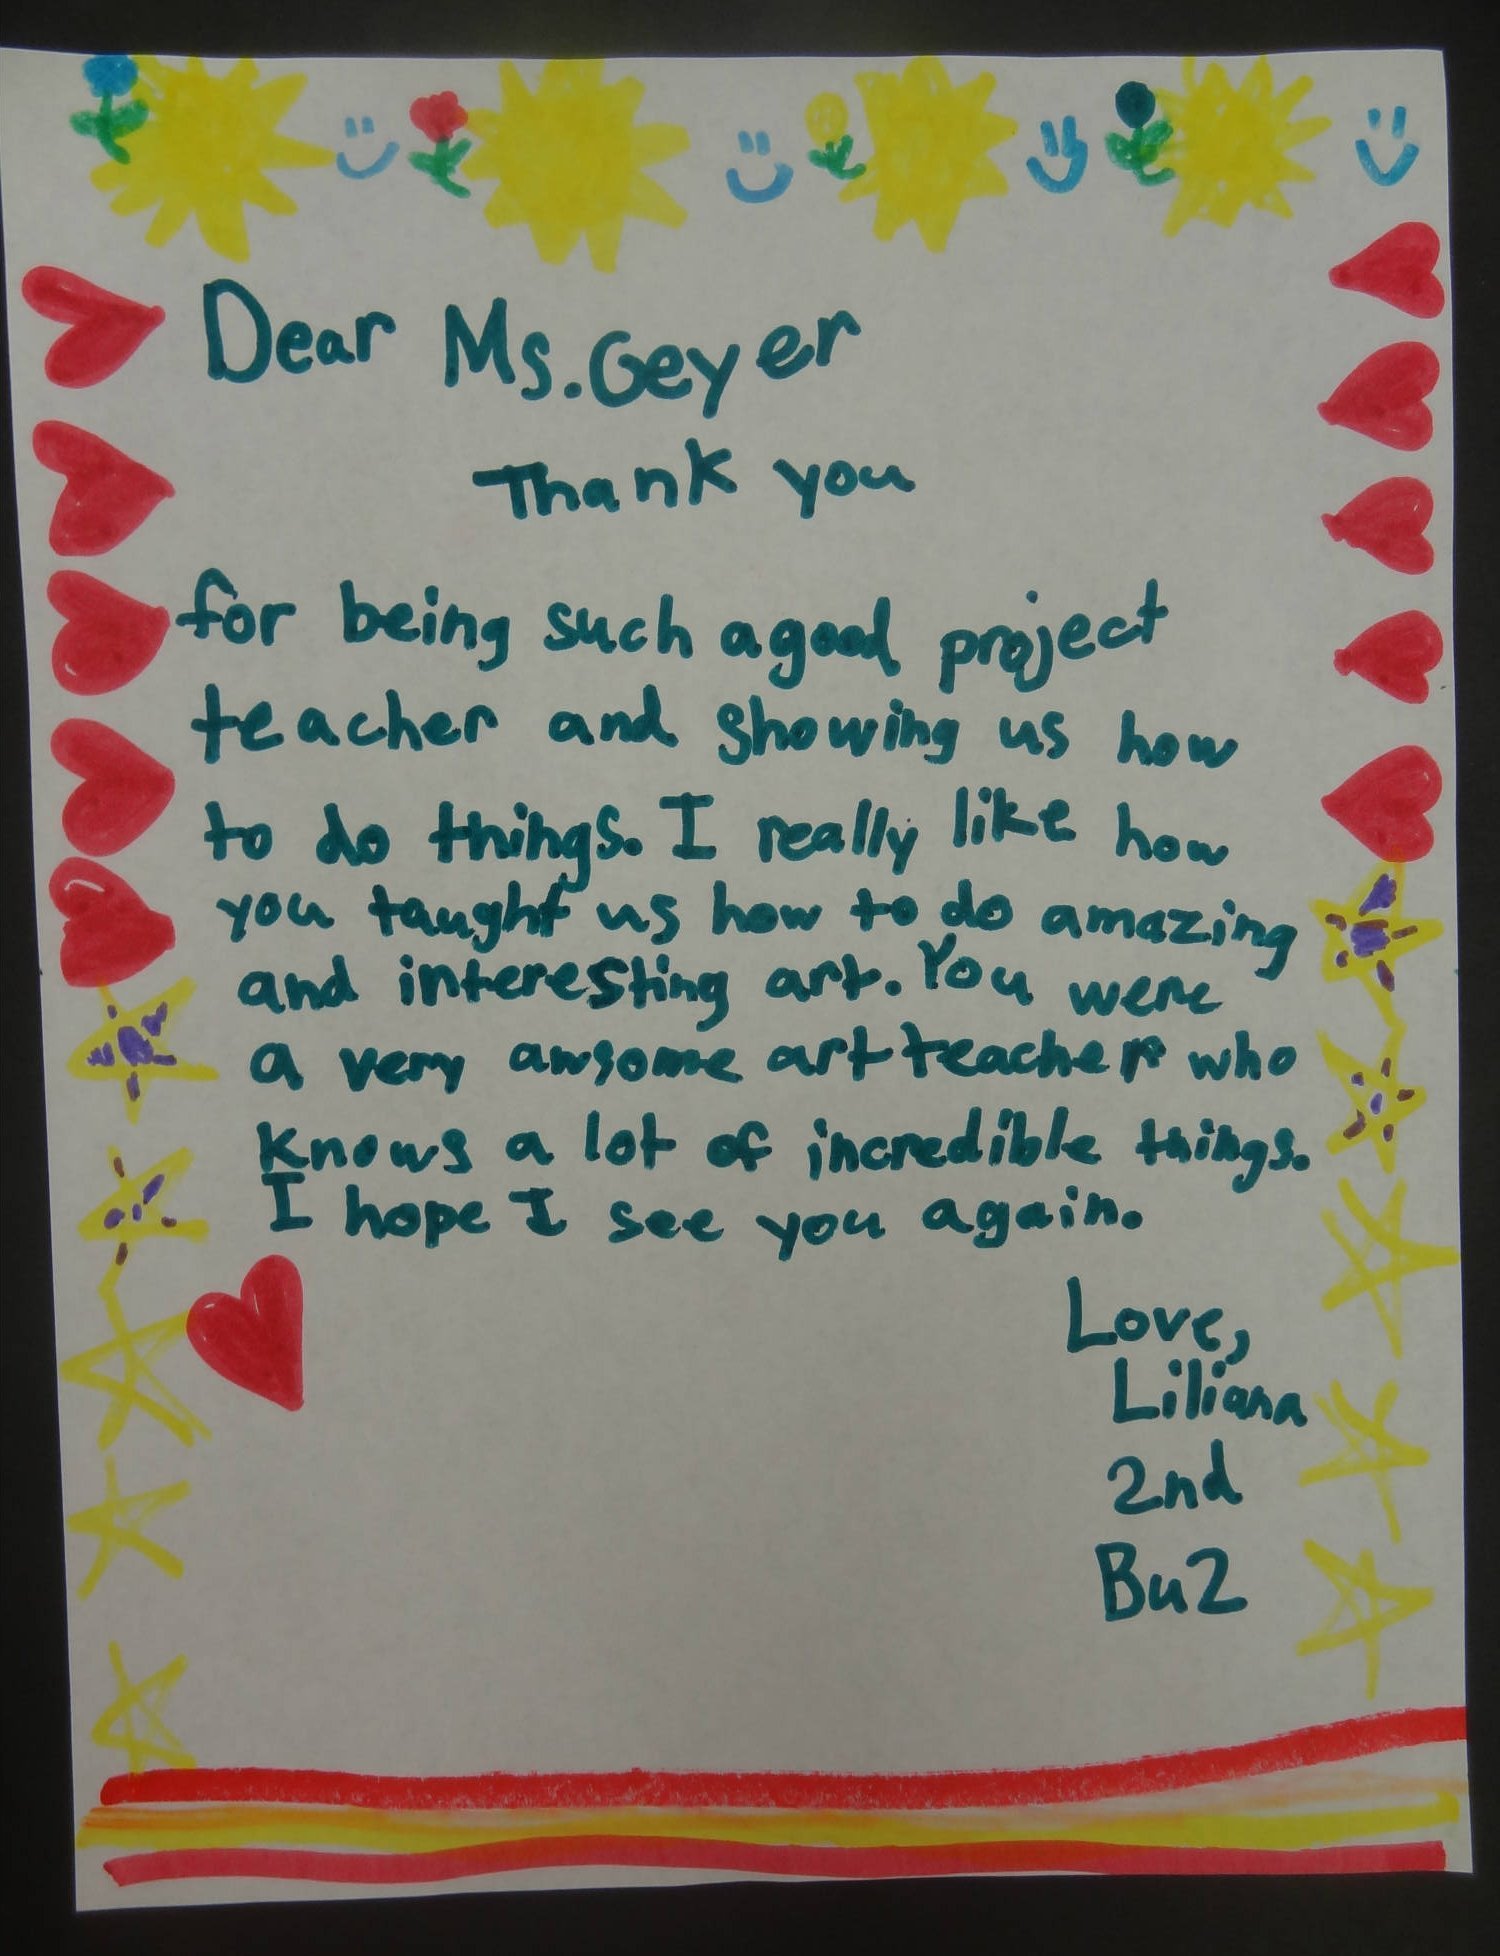 Dear Ms. Geyer
Thank you
for being such a good project
teacher and showing us how
to do things. I really like how
you taught us how to do amazing
and interesting art. You were
a very awsome art teacher who
knows a lot of incredible things.
I hope I see you again.
Love,
Liliana
2nd
Bu2